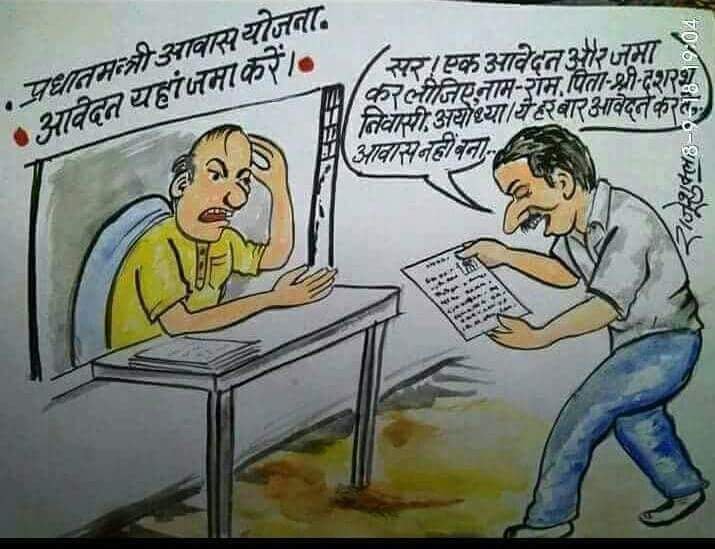 प्रधानमन्त्री आवास योजना.
आवेदन यहां जमा करें।
सर। एक आवेदन और जमा
कर लीजिए, नाम-राम, पिता-श्री दशरथ
निवासी. अयोध्या। ये हर बार आवेदन करते
आवास नहीं बना..
राजेश शुक्ला